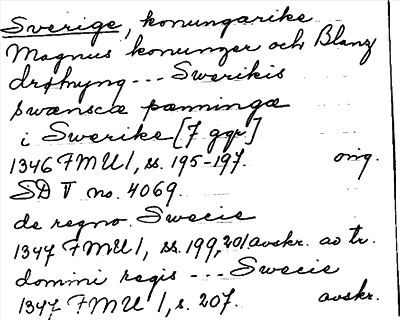 Sverige, konungarike
Magnus konunger och Blanz
drøtnyng --- Swerikis
swænscæ pænningæ
i Swerike [7 ggr]
1346 FMU 1, ss. 195-197. orig.
SD V no. 4069.
de regno Swecie
1347 FMU 1, ss. 199, 201 avskr. ao tr.
domini regis --- Swecie
1347 FMU 1, s. 207. avskr.